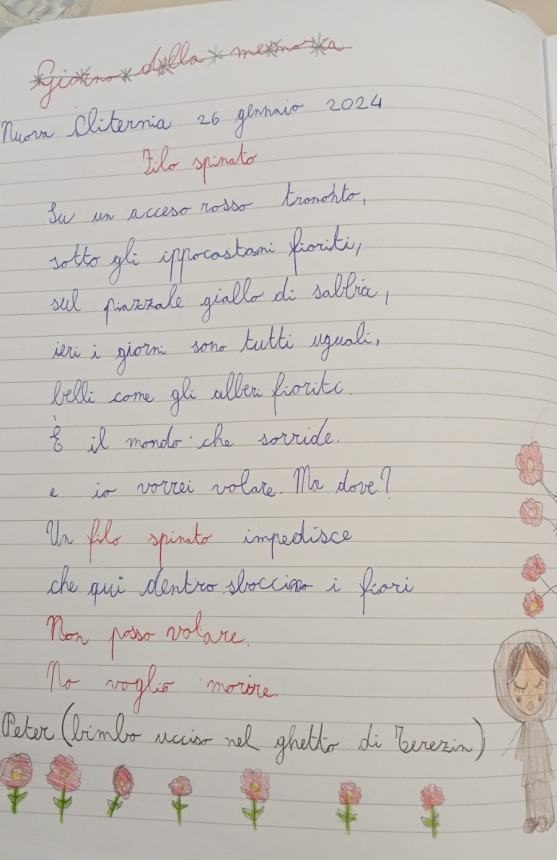 Giorno della memoria
Nuova Cliternia 26 gennaio 2024
Filo spinato
Su un acceso rosso tramonto,
sotto gli ippocastani fioriti,
sul piazzale giallo di sabbia,
ieri i giorni sono tutti uguali,
belli come gli alberi fioriti.
È il mondo che sorride.
e io vorrei volare. Ma dove?
Un filo spinato impedisce
che qui dentro sboccino i fiori
Non posso volare.
No voglio morire.
Peter (bimbo ucciso nel ghetto di Terezin)